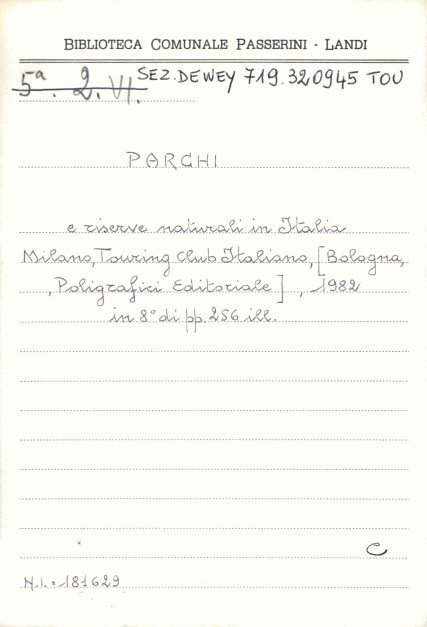 BIBLIOTECA COMUNALE PASSERINI - LANDI
5ª. 2. VI. SEZ. DEWEY 719.320945 TOU
PARCHI
e riserve naturali in Italia
Milano, Touring Club Italiano, [Bologna,
, Poligrafici Editoriale] , 1982
in 8° di pp. 256 ill.
C
N.I. = 181629